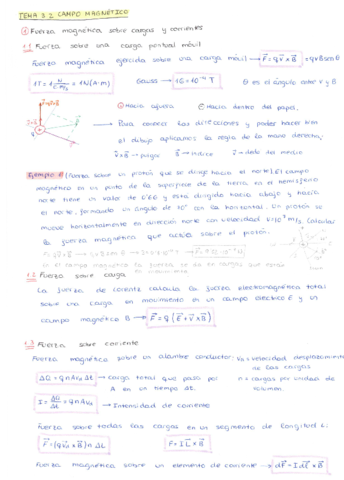 TEMA 3.2 CAMPO MAGNÉTICO
① Fuerza magnética sobre cargas y corrientes
1.1 Fuerza sobre una carga puntual móvil
Fuerza magnética ejercida sobre una carga móvil → F = q v × B = qvB senθ
1T = 1 N/(C·m/s) = 1N/(A·m) Gauss → 1G = 10⁻⁴ T θ es el ángulo entre v y B
⊙ Hacia afuera ⊗ Hacia dentro del papel.
Para conocer las direcciones y poder hacer bien
el dibujo aplicamos la regla de la mano derecha:
v × B → pulgar B → índice → dedo del medio
Ejemplo ① (Fuerza sobre un protón que se dirige hacia el norte) El campo
magnético en un punto de la superficie de la tierra en el hemisferio
norte tiene un valor de y está dirigido hacia abajo y hacia
el norte, formando un ángulo de con la horizontal. Un protón se
mueve horizontalmente en dirección norte con velocidad m/s. Calcular
la fuerza magnética que actúa sobre el protón.
1.2 Fuerza sobre carga en movimiento
La fuerza de Lorentz calcula la fuerza electromagnética total
sobre una carga en movimiento en un campo eléctrico E y un
campo magnético B → F = q (E + v × B)
1.3 Fuerza sobre corriente
Fuerza magnética sobre un alambre conductor: Va = velocidad desplazamiento
de las cargas
ΔQ = q n A Va Δt → Carga total que pasa por n = cargas por unidad de
A en un tiempo Δt. volumen
I = ΔQ/Δt = q n A Va → Intensidad de corriente
Fuerza sobre todas las cargas en un segmento de longitud L:
F = (q Va × B) n A L F = I L × B
Fuerza magnética sobre un elemento de corriente → dF = I dl × B